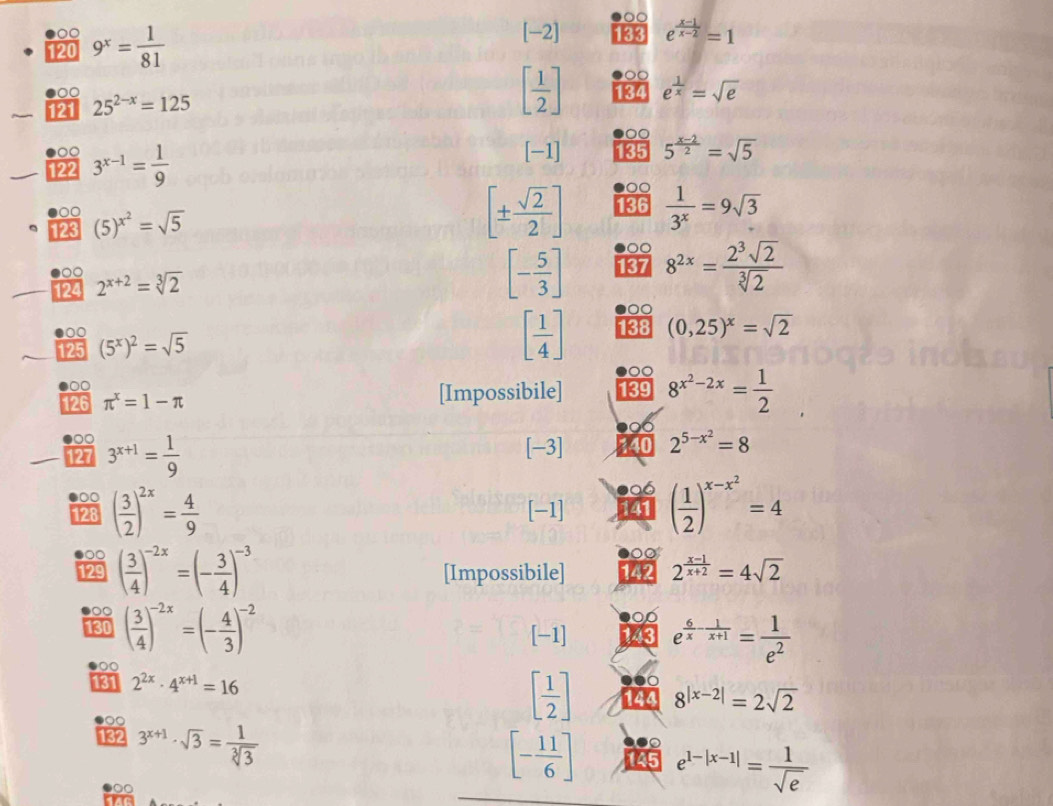 120 9^x = 1/81 [−2]
121 25^{2−x} = 125 [1/2]
122 3^{x−1} = 1/9 [−1]
123 (5)^{x^2} = √5 [±√2/2]
124 2^{x+2} = ∛2 [−5/3]
125 (5^x)^2 = √5 [1/4]
126 π^x = 1 − π [Impossibile]
127 3^{x+1} = 1/9 [−3]
128 (3/2)^{2x} = 4/9 [−1]
129 (3/4)^{−2x} = (−3/4)^{−3} [Impossibile]
130 (3/4)^{−2x} = (−4/3)^{−2} [−1]
131 2^{2x} · 4^{x+1} = 16 [1/2]
132 3^{x+1} · √3 = 1/∛3 [−11/6]
133 e^{(x−1)/(x−2)} = 1
134 e^{1/x} = √e
135 5^{(x−2)/2} = √5
136 1/3^x = 9√3
137 8^{2x} = 2^3√2/∛2
138 (0,25)^x = √2
139 8^{x^2−2x} = 1/2
140 2^{5−x^2} = 8
141 (1/2)^{x−x^2} = 4
142 2^{(x−1)/(x+2)} = 4√2
143 e^{6/x − 1/(x+1)} = 1/e^2
144 8^{|x−2|} = 2√2
145 e^{1−|x−1|} = 1/√e